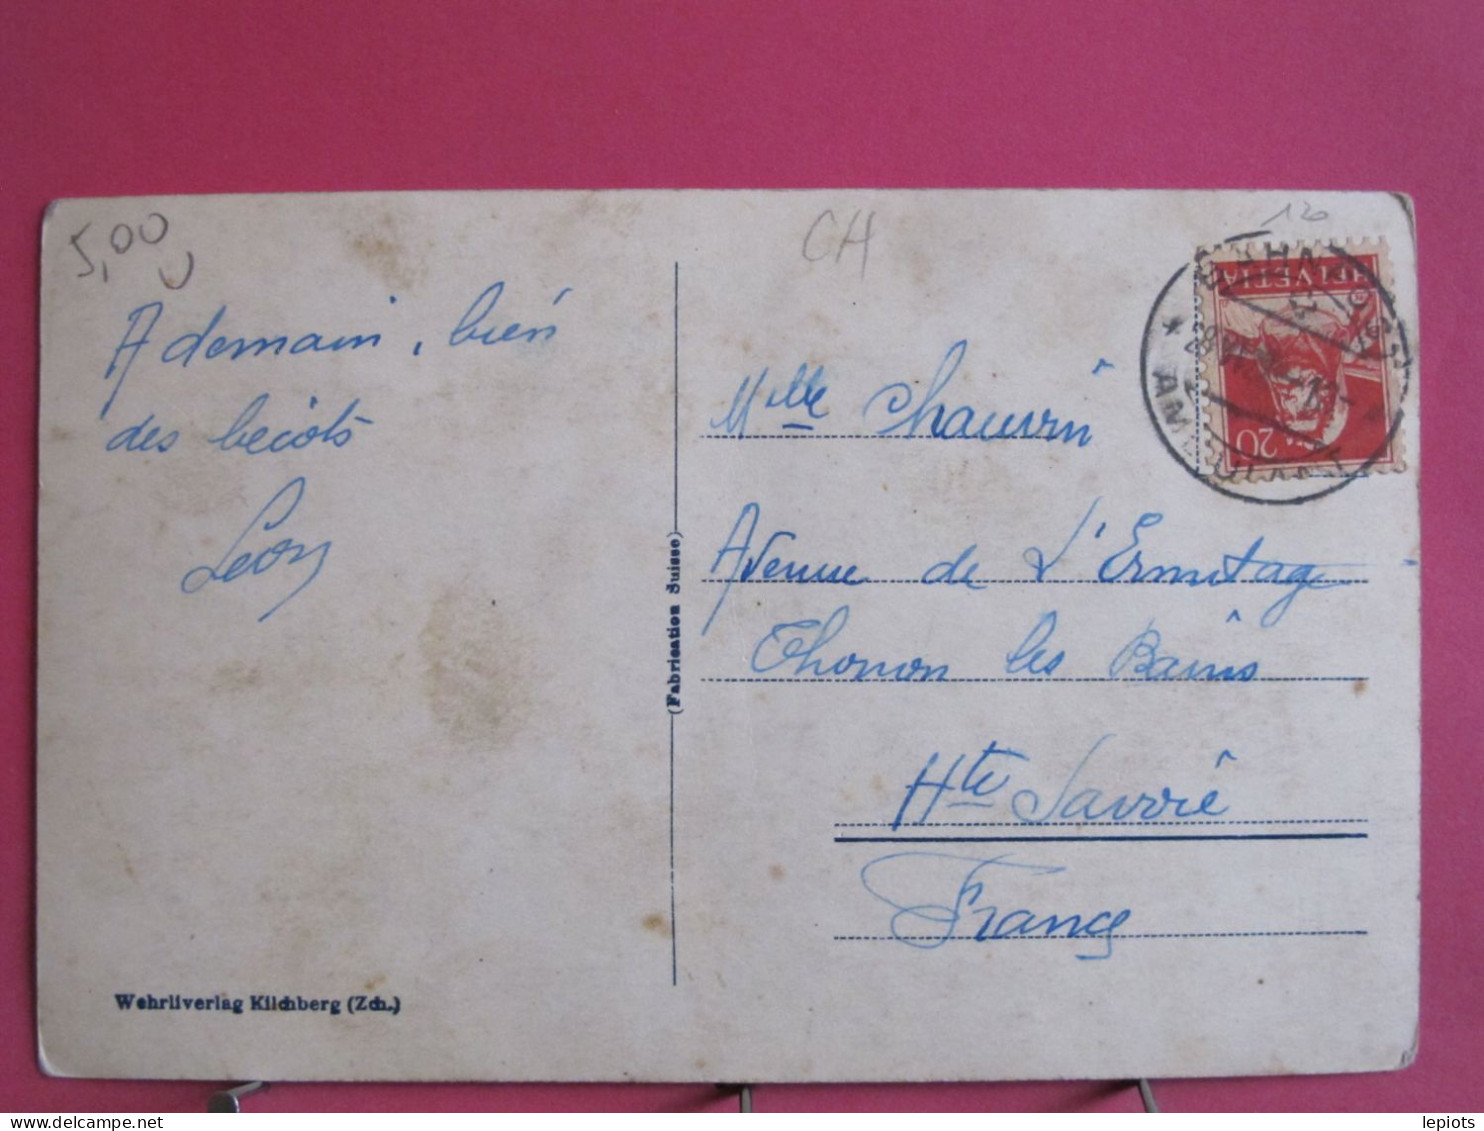 5,00
CH
120
A demain, bien
des becots
Leon
Mlle Chauvin
Avenue de L'Ermitage
Thonon les Bains
Hte Savoie
France
(Fabrication Suisse)
Wehrliverlag Kilchberg (Zch.)
HELVETIA
20
BAHNPOST
AMBULANT